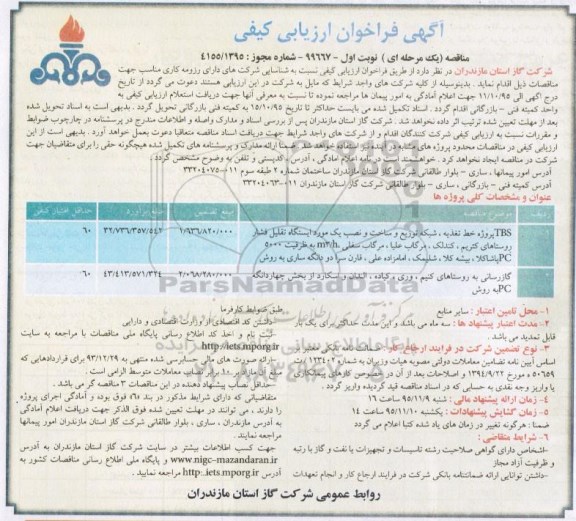 آگهی فراخوان ارزیابی کیفی
مناقصه (یک مرحله ای ) نوبت اول - ۹۹۶۶۷ - شماره مجوز : ۴۱۵۵/۱۳۹۵
شرکت گاز استان مازندران در نظر دارد از طریق فراخوان ارزیابی کیفی نسبت به شناسایی شرکت های دارای رزومه کاری مناسب جهت
مناقصات ذیل اقدام نماید . بدینوسیله از کلیه شرکت های واجد شرایط که مایل به شرکت در این ارزیابی هستند دعوت می گردد از تاریخ
درج آگهی الی ۹۵/۱۰/۱۱ جهت اعلام آمادگی به امور پیمان ها مراجعه نموده تا نسبت به معرفی آنها جهت دریافت استعلام ارزیابی کیفی به
واحد کمیته فنی – بازرگانی اقدام گردد . اسناد تکمیل شده می بایست حداکثر تا تاریخ ۹۵/۱۰/۱۵ به کمیته فنی بازرگانی تحویل گردد . بدیهی است به اسناد تحویل شده
بعد از مهلت تعیین شده ترتیب اثر داده نخواهد شد . شرکت گاز استان مازندران پس از بررسی اسناد و مدارک واصله و اطلاعات مندرج در پرسشنامه در چارچوب ضوابط
و مقررات نسبت به ارزیابی کیفی شرکت کنندگان اقدام و از شرکت های واجد شرایط جهت دریافت اسناد مناقصه متعاقبا دعوت بعمل خواهد آورد . بدیهی است از این
ارزیابی کیفی در مناقصات محدود پروژه های
شرکت در مناقصه ایجاد نخواهد کرد .
آدرس امور پیمانها , ساری – بلوار طالقانی شرکت گاز استان مازندران ساختمان شماره ۲ طبقه سوم ۰۱۱-۳۳۲۰۴۰۷۵
آدرس کمیته فنی – بازرگانی , ساری – بلوار طالقانی شرکت گاز استان مازندران ۰۱۱-۳۳۲۰۴۰۶۳
عنوان و مشخصات کلی پروژه ها
ردیف موضوع مناقصه مبلغ تضمین مبلغ برآورد حداقل امتیاز کیفی
پروژه خط تغذیه ، شبکه توزیع و ساخت و نصب یک مورد ایستگاه تقلیل فشار TBS ۱/۶۳۶/۸۲۰/۰۰۰ ۳۲/۷۳۶/۳۵۷/۵۴۲ ۶۰
روستاهای کتریم ، کندلک ، مرگاب علیا ، مرگاب سفلی m۳/h، به ظرفیت ۵۰۰۰
گازرسانی به روستاهای کنیم ، وری و کیاده ، البقان و اسکارد از بخش چهاردانگه ۲/۰۶۸/۲۸۰/۰۰۰ ۴۳/۴۱۳/۵۷۱/۳۲۴ ۶۰
به روش PC
۱- محل تامین اعتبار : سایر منابع
۲- مدت اعتبار پیشنهاد ها : سه ماه می باشد و این مدت حداکثر برای یک بار
قابل تمدید می باشد .
۳- نوع تضمین شرکت در فرایند ارجاع کار ، ضمانت نامه بانکی معتبر
آیین نامه تضمین معاملات دولتی مصوبه هیات وزیران به شماره ۱۲۳۴۰۲/ت
۵۰۶۵۹ ه مورخ ۱۳۹۴/۹/۲۲ و اصلاحات بعد از آن در خصوص کارهای پیمانکاری
یا واریز وجه نقدی به حسابی که در اسناد مناقصه قید گردیده واریز گردد .
۴- زمان ارائه پیشنهاد مالی : شنبه ۹۵/۱۱/۹ ساعت ۱۶
۵- زمان گشایش پیشنهادات : یکشنبه ۹۵/۱۱/۱۰ ساعت ۱۴
ضمنا : هرگونه تغییر در زمان های یاد شده کتبا اعلام می گردد
۶- شرایط متقاضی :
-اشخاص دارای گواهی صلاحیت رشته تاسیسات و تجهیزات یا نفت و گاز با رتبه
و ظرفیت آزاد مجاز
-داشتن توانایی ارائه ضمانتنامه بانکی شرکت در فرایند ارجاع کار و انجام تعهدات
طبق ضوابط کارفرما
-داشتن کد اقتصادی از وزارت اقتصادی و دارایی
-ثبت نام و اخذ کد اطلاع رسانی پایگاه ملی مناقصات با مراجعه به سایت
http://iets.mporg.ir
-ارائه صورت های مالی حسابرسی شده منتهی به ۹۳/۱۲/۲۹ برای قراردادهایی که
معاملات متوسط الزامی است .
-حداقل نصاب پیشنهاد دهنده در این مناقصات ۳ مناقصه گر می باشد .
متقاضیانی که دارای شرایط مذکور در بند ۶ فوق بوده و آمادگی اجرای پروژه
را دارند ، می توانند در مهلت تعیین شده فوق الذکر جهت دریافت اعلام آمادگی
به آدرس مازندران ، ساری ، بلوار طالقانی شرکت گاز استان مازندران امور پیمانها
مراجعه نمایند .
جهت کسب اطلاعات بیشتر در سایت شرکت گاز استان مازندران به آدرس
www.nigc-mazandaran.ir و پایگاه ملی اطلاع رسانی مناقصات کشور به
آدرس http://iets.mporg.ir مراجعه نمایید .
روابط عمومی شرکت گاز استان مازندران
ParsNamadData